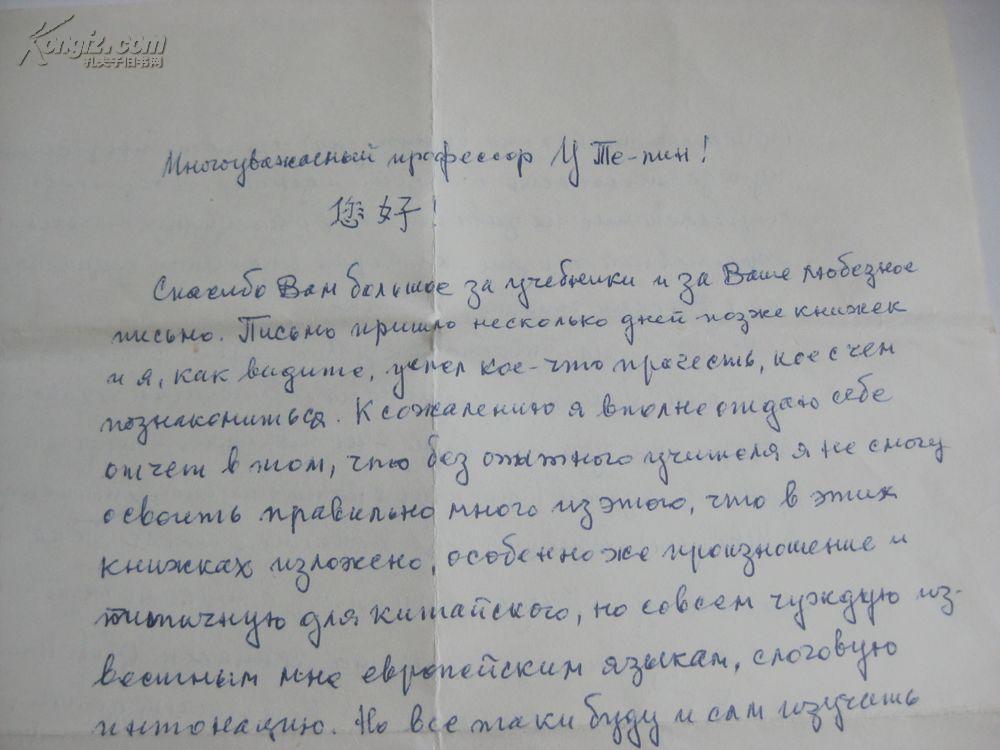 Kongfz.com
孔夫子旧书网
Многоуважаемый профессор У Те-пин!
您好!
Спасибо Вам большое за учебники и за Ваше любезное
письмо. Письмо пришло несколько дней позже книжек
и я, как видите, успел кое-что прочесть, кое с чем
познакомиться. К сожалению я вполне отдаю себе
отчет в том, что без опытного учителя я не смогу
освоить правильно много из этого, что в этих
книжках изложено, особенно же произношение и
типичную для китайского, но совсем чуждую из-
вестным мне европейским языкам, слоговую
интонацию. Но все таки буду и сам изучать